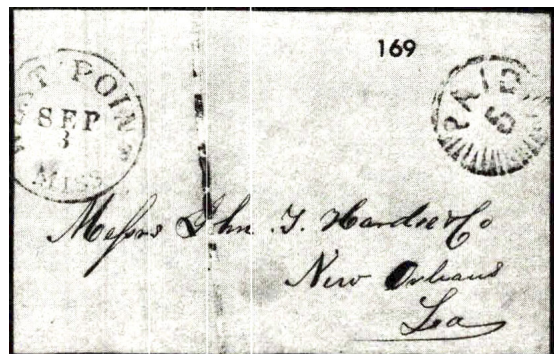 169
WEST POINT
SEP
3
MISS
PAID
5
Messrs John T. Hardie & Co
New Orleans
La